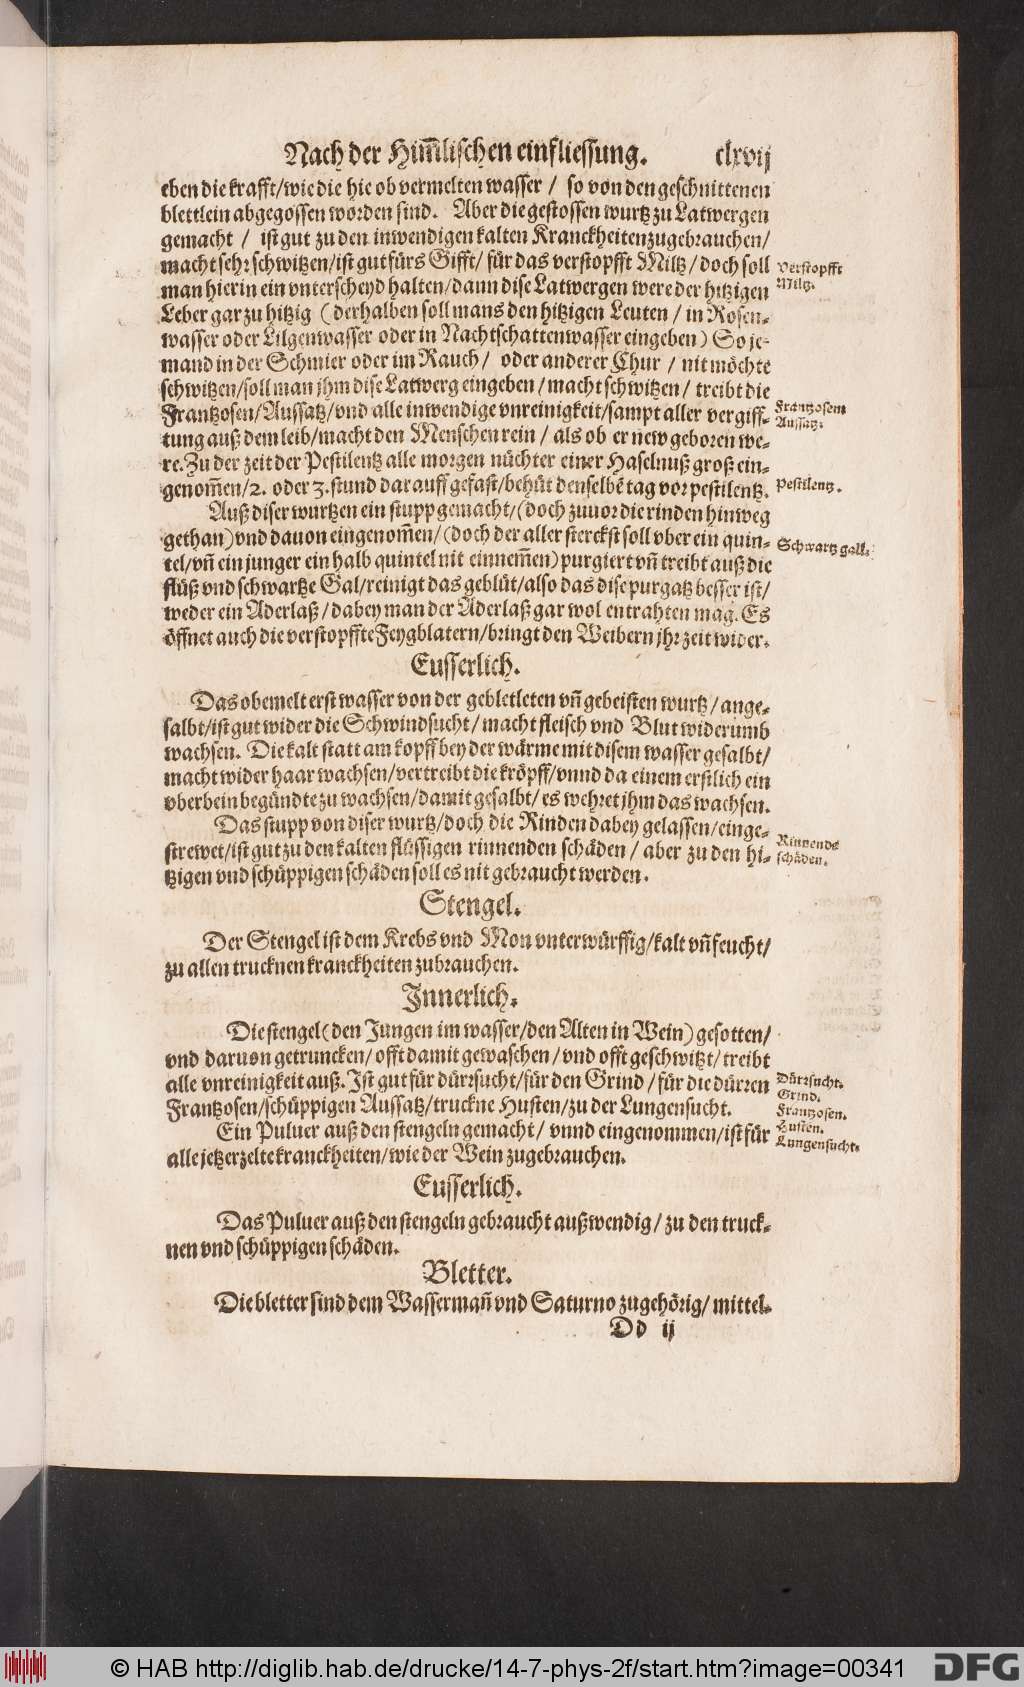 Nach der Himͤlischen einfliessung. clxvij
eben die krafft/wie die hie ob vermelten wasser / so von den geschnittenen
blettlein abgegossen worden sind. Aber die gestossen wurtz zu Latwergen
gemacht / ist gut zu den inwendigen kalten Kranckheiten zugebrauchen/
macht sehr schwitzen/ist gut fürs Gifft/ für das verstopfft Miltz/doch soll
verstopfft
Miltz.
man hierin ein vnterscheyd halten/dann dise Latwergen were der hitzigen
Leber gar zu hitzig (derhalben soll mans den hitzigen Leuten / in Rosen-
wasser oder Lilgenwasser oder in Nachtschattenwasser eingeben) So je-
mand in der Schmier oder im Rauch/ oder anderer Chur / nit möchte
schwitzen/soll man jhm dise Latwerg eingeben/macht schwitzen/ treibt die
Frantzosen/Aussatz/vnd alle inwendige vnreinigkeit/sampt aller vergiff-
Frantzosem
Aussatz.
tung auß dem leib/macht den Menschen rein / als ob er new geboren we-
re. Zu der zeit der Pestilentz alle morgen nüchter einer Haselnuß groß ein-
genom̃en/2. oder 3. stund darauff gefast/behüt denselbẽ tag vor pestilentz.
Pestilentz.
Auß diser wurtzen ein stupp gemacht/(doch zuuor die rinden hinweg
gethan) vnd dauon eingenom̃en/(doch der aller sterckst soll vber ein quin-
Schwartz gall.
tel/vñ ein junger ein halb quintel nit einnem̃en) purgiert vñ treibt auß die
flüß vnd schwartze Gal/reinigt das geblüt/also das dise purgatz besser ist/
weder ein Aderlaß/dabey man der Aderlaß gar wol entrahten mag. Es
öffnet auch die verstopffte Feygblatern/bringt den Weibern jhr zeit wider.
Eusserlich.
Das obemelt erst wasser von der gebletleten vñ gebeisten wurtz/ange-
salbt/ist gut wider die Schwindsucht/macht fleisch vnd Blut widerumb
wachsen. Die kalt statt am kopff bey der wärme mit disem wasser gesalbt/
macht wider haar wachsen/vertreibt die kröpff/vnnd da einem erstlich ein
vberbein begündte zu wachsen/damit gesalbt/ es wehret jhm das wachsen.
Das stupp von diser wurtz/doch die Rinden dabey gelassen/einge-
strewet/ist gut zu den kalten flüssigen rinnenden schäden/ aber zu den hi-
Rinnende
schäden.
tzigen vnd schüppigen schäden soll es nit gebraucht werden.
Stengel.
Der Stengel ist dem Krebs vnd Mon vnterwürffig/kalt vñ feucht/
zu allen trucknen kranckheiten zubrauchen.
Innerlich.
Die stengel (den Jungen im wasser/den Alten in Wein) gesotten/
vnd daruon getruncken/ offt damit gewaschen/vnd offt geschwitzt/treibt
alle vnreinigkeit auß. Ist gut für dürrsucht/für den Grind/für die dürren
Dürrsucht.
Grind.
Frantzosen/schüppigen Aussatz/truckne Husten/zu der Lungensucht.
Frantzosen.
Husten.
Ein Puluer auß den stengeln gemacht/ vnnd eingenommen/ist für
Lungensucht.
alle jetz erzelte kranckheiten/wie der Wein zugebrauchen.
Eusserlich.
Das Puluer auß den stengeln gebraucht außwendig/ zu den truck-
nen vnd schüppigen schäden.
Bletter.
Die bletter sind dem Wassermañ vnd Saturno zugehörig/ mittel-
Dd ij
© HAB http://diglib.hab.de/drucke/14-7-phys-2f/start.htm?image=00341
DFG